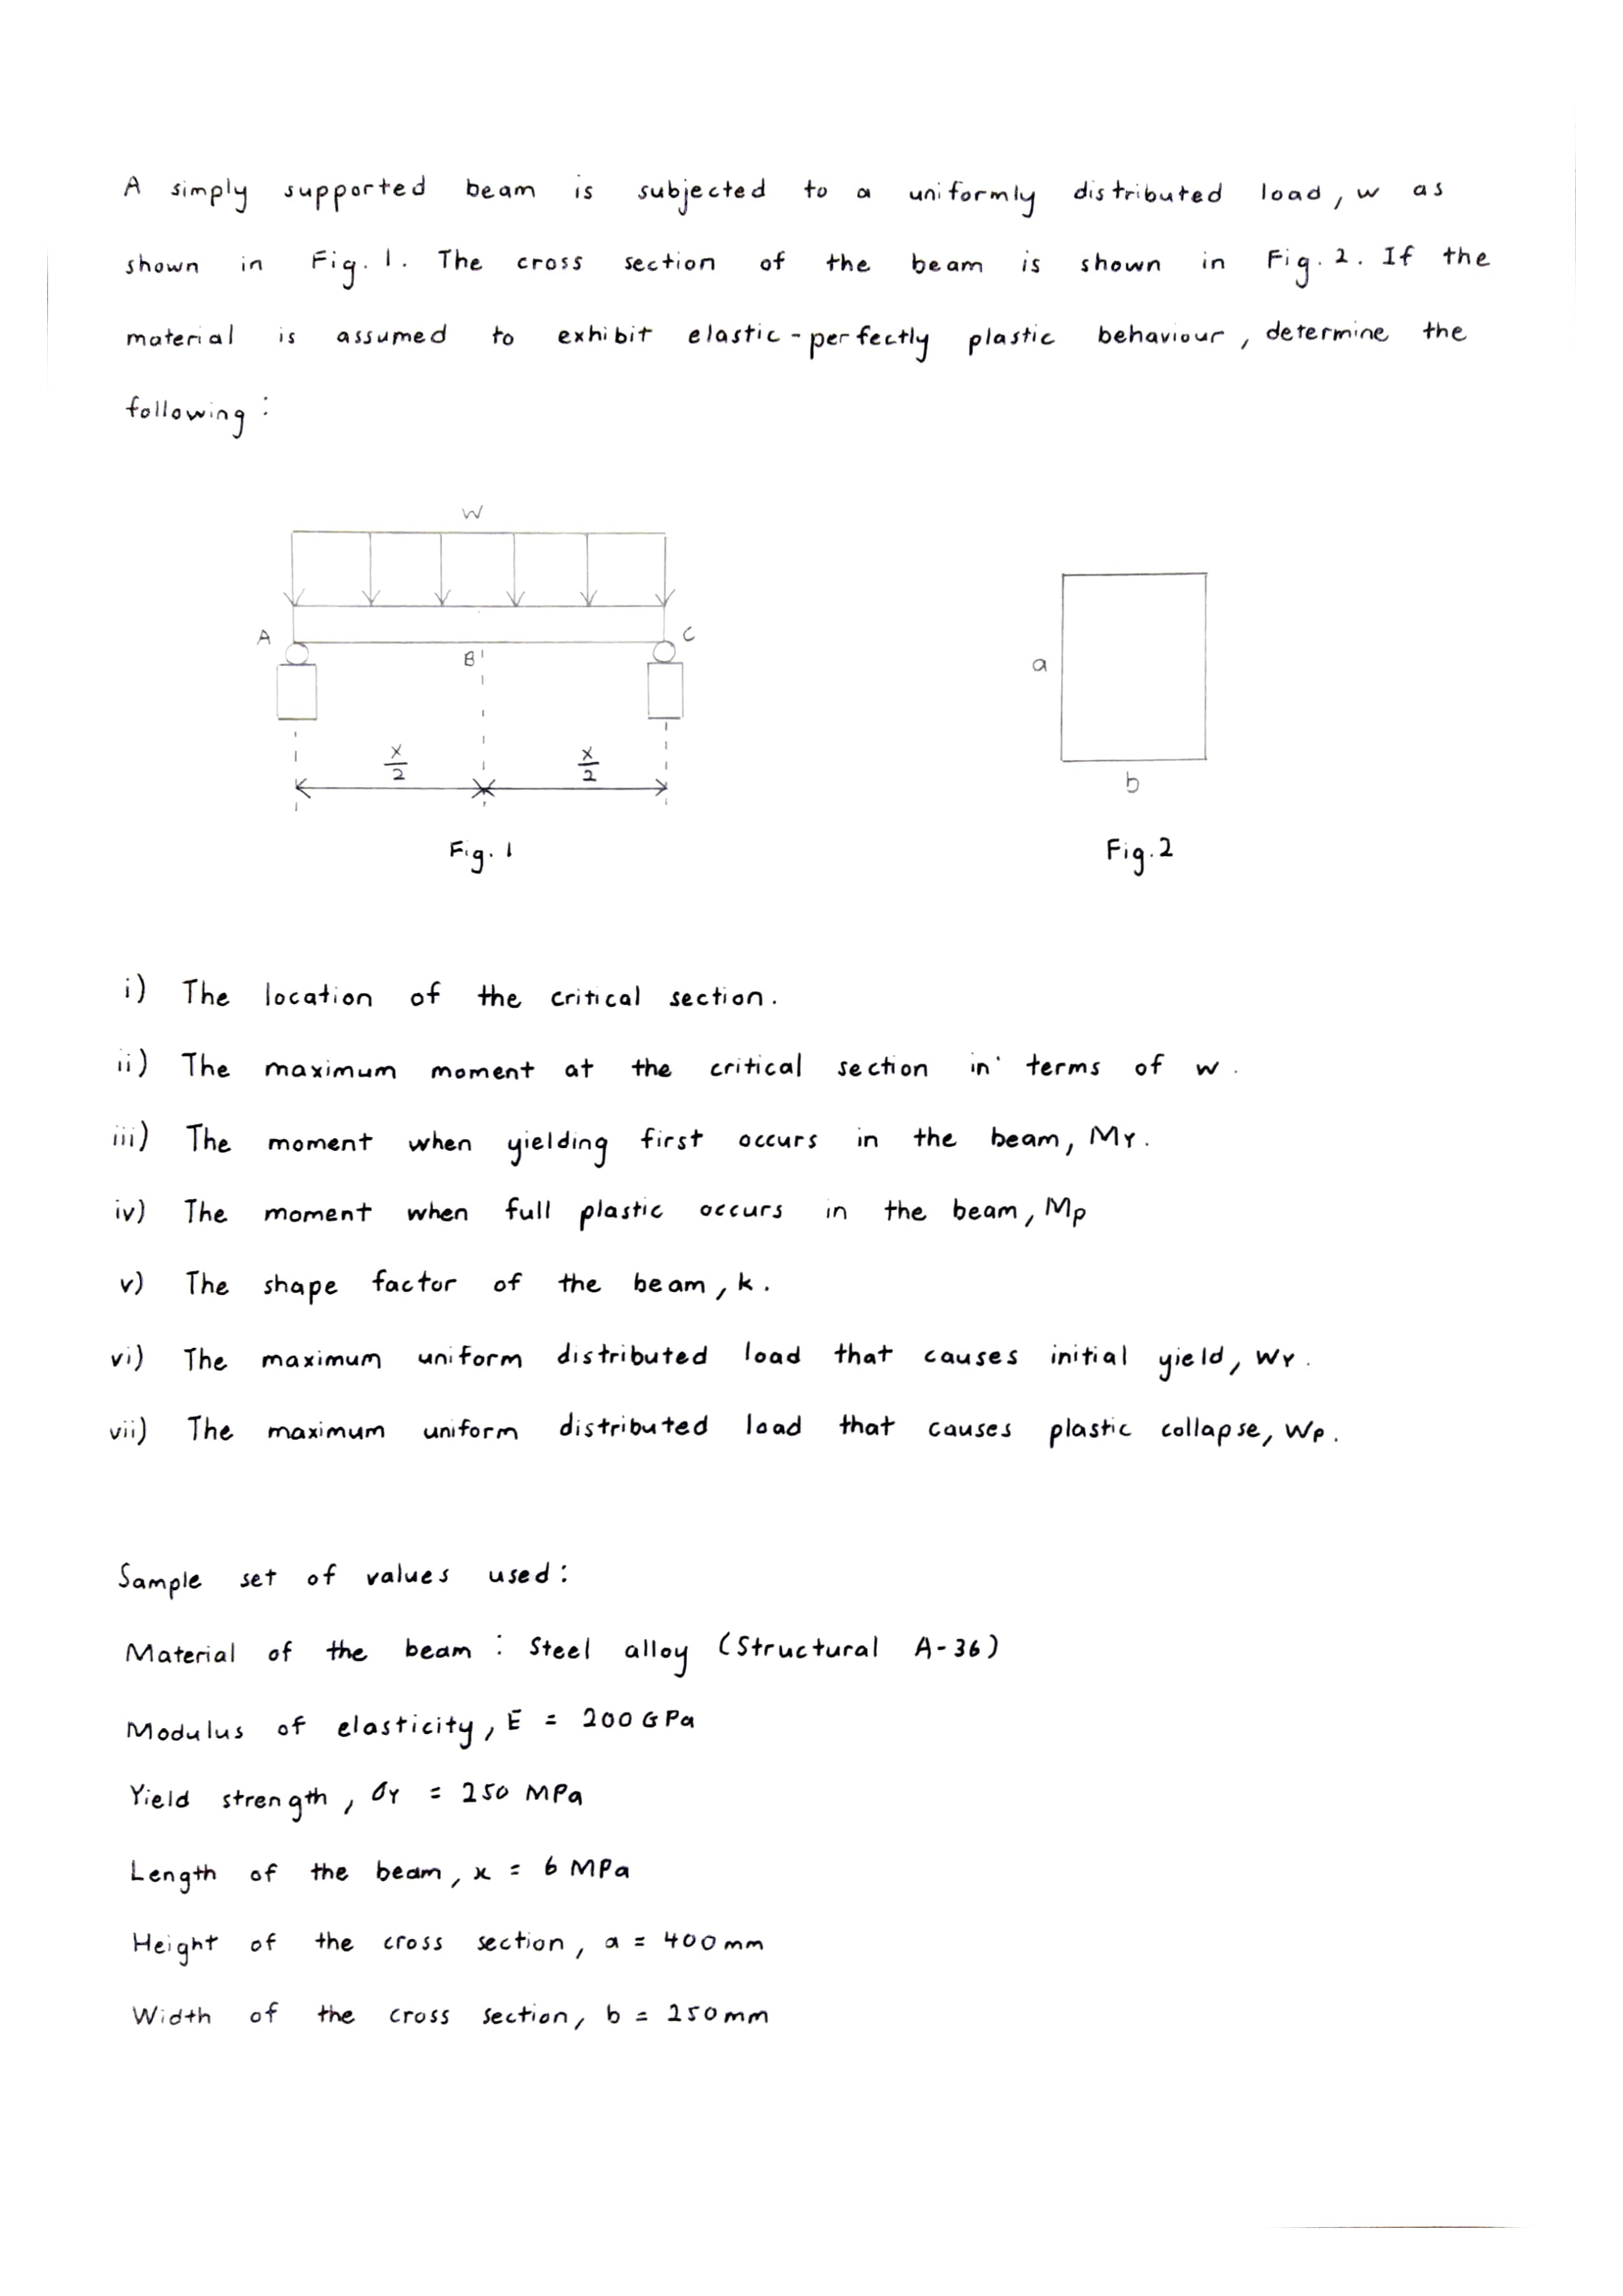 A simply supported beam is subjected to a uniformly distributed load, w as
shown in Fig. 1. The cross section of the beam is shown in Fig. 2. If the
material is assumed to exhibit elastic-perfectly plastic behaviour, determine the
following:
W
A
B
C
x/2
x/2
Fig. 1
a
b
Fig. 2
i) The location of the critical section.
ii) The maximum moment at the critical section in terms of w.
iii) The moment when yielding first occurs in the beam, MY.
iv) The moment when full plastic occurs in the beam, Mp
v) The shape factor of the beam, k.
vi) The maximum uniform distributed load that causes initial yield, WY.
vii) The maximum uniform distributed load that causes plastic collapse, WP.
Sample set of values used:
Material of the beam : Steel alloy (Structural A-36)
Modulus of elasticity, E = 200 GPa
Yield strength, σY = 250 MPa
Length of the beam, x = 6 MPa
Height of the cross section, a = 400mm
Width of the cross section, b = 250mm